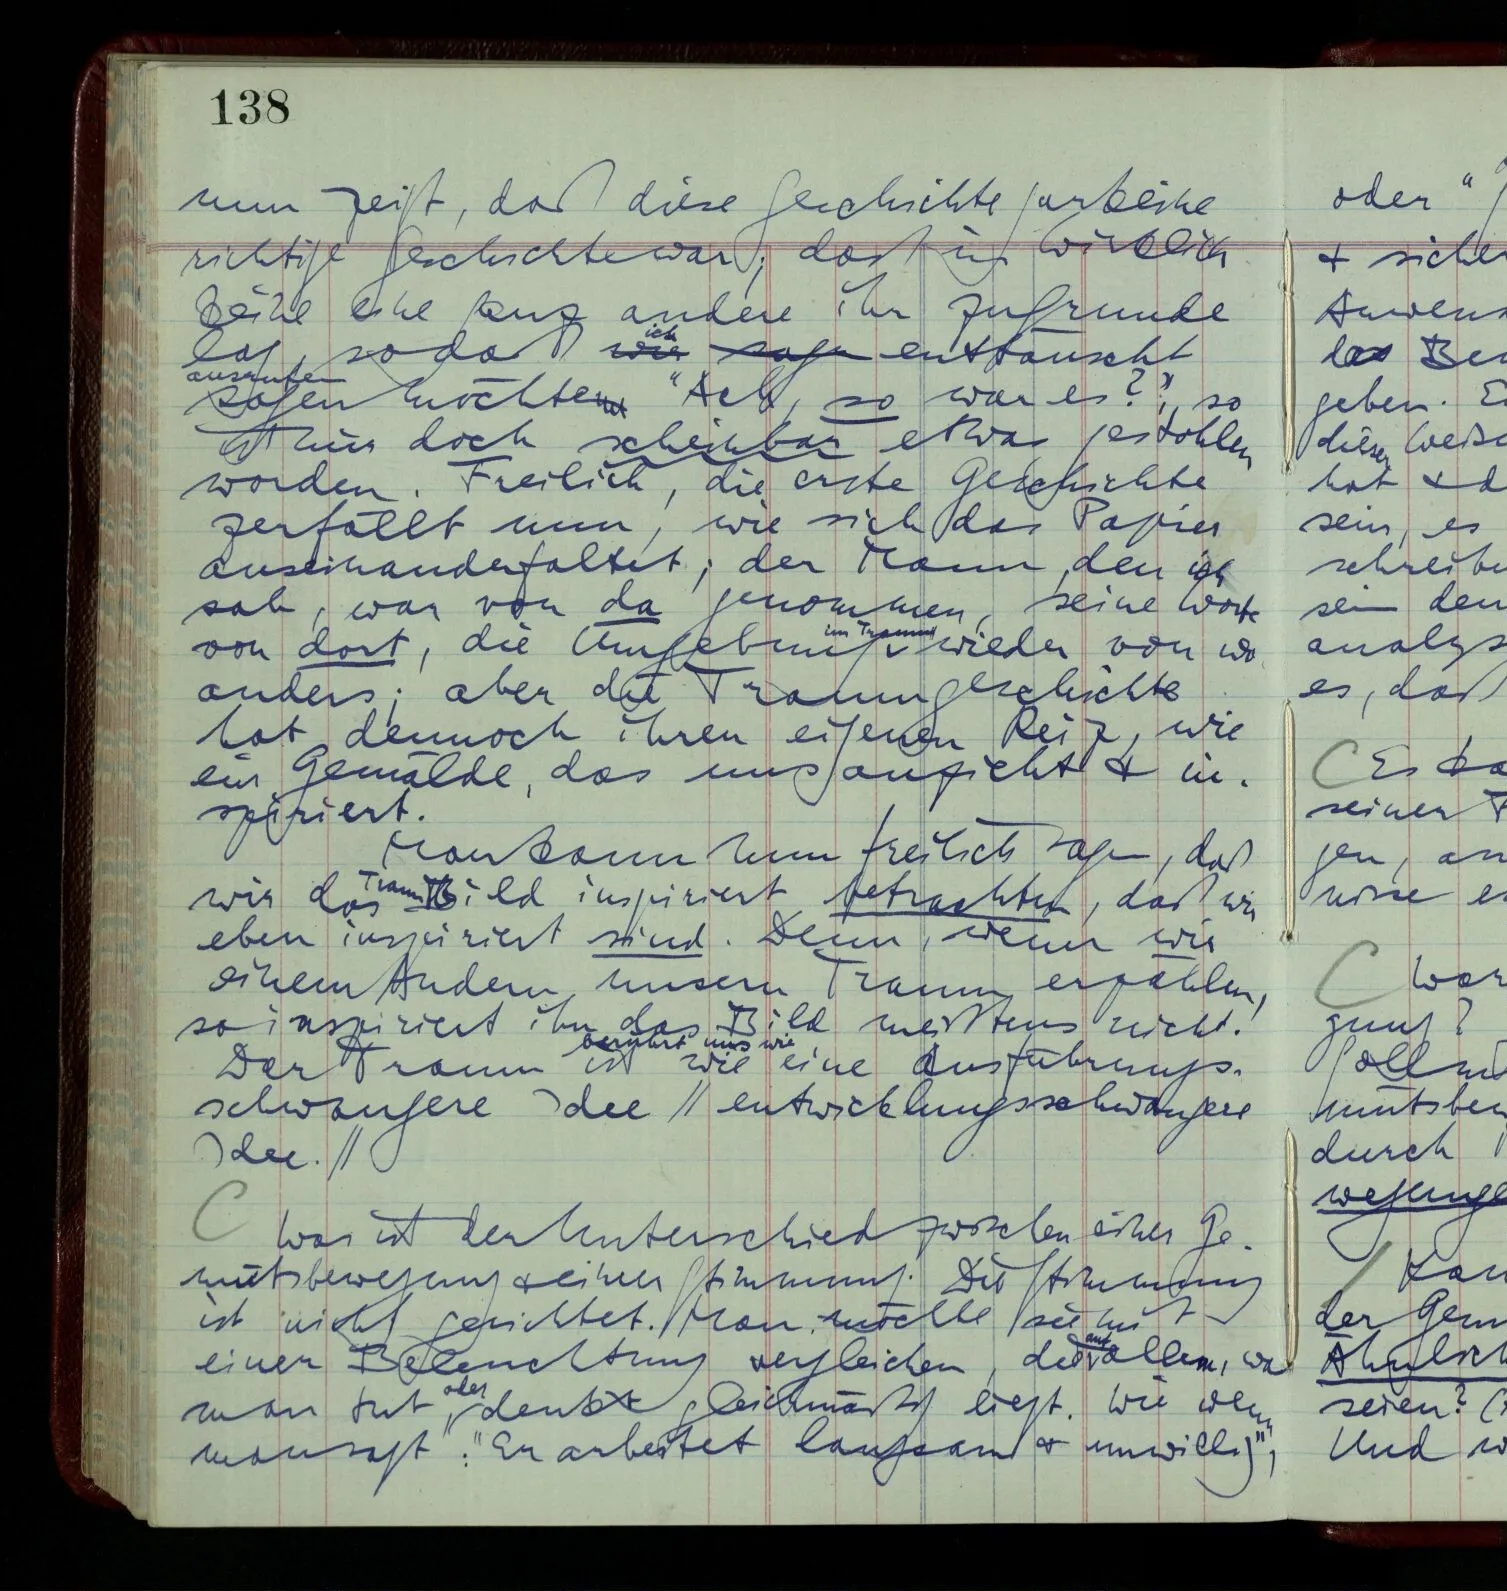 138
nun zeigt, daß diese Geschichte gar keine
richtige Geschichte war; daß in Wirklich
keine eine ganz andere ihr zugrunde
lag, sodaß wir ich sagen enttäuscht
ausrufen
sagen möchten "Ach, so war es?", so
ist hier doch scheinbar etwas gestohlen
worden. Freilich, die erste Geschichte
zerfällt nun, wie sich das Papier
auseinanderfaltet; der Mann, den ich
sah, war von da genommen, seine Worte
von dort, die Umgebung im Traume wieder von wo
anders; aber die Traumgeschichte
hat dennoch ihren eigenen Reiz, wie
ein Gemälde, das uns anzieht & in-
spiriert.
Man kann nun freilich sagen, daß
wir das Traumbild inspiriert betrachten, daß wir
eben inspiriert sind. Denn, wenn wir
einem Andern unsern Traum erzählen,
so inspiriert ihn das Bild meistens nicht.
berührt uns wie
Der Traum ist wie eine ausführungs-
schwangere Idee // entwicklungsschwangere
Idee. //
C Was ist der Unterschied zwischen einer Ge-
mütsbewegung & einer Stimmung. Die Stimmung
ist nicht gerichtet. Man möchte sie mit
einer Beleuchtung vergleichen, die auf allem, was
man tut, oder denkt gleichmäßig liegt. Wie wenn
man sagt: "Er arbeitet langsam & unwillig",
oder "
& sicher
geben.
hat & d
sein, es
sein den
es, daß
C Es
seiner
gen, an
nisse es
C War
gung?
mütsbew
durch
wegunge
der Gem
Ähnlich
seien?
Und w